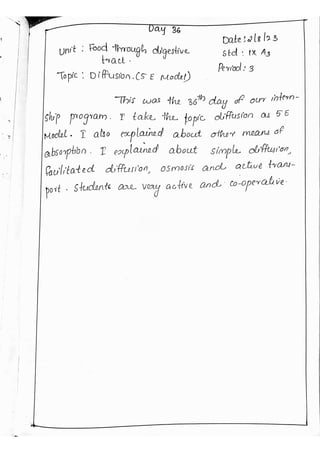 Day 36
Date : 2/8/23
Unit : Food through digestive Std : IX A3
tract. Period : 3
Topic : Diffusion. (5 E Model)
This was the 36th day of our intern-
ship program. I take the topic diffusion as 5E
Model. I also explained about other means of
absorption. I explained about simple diffusion,
facilitated diffusion, osmosis and active trans-
port. Students are very active and co-operative.